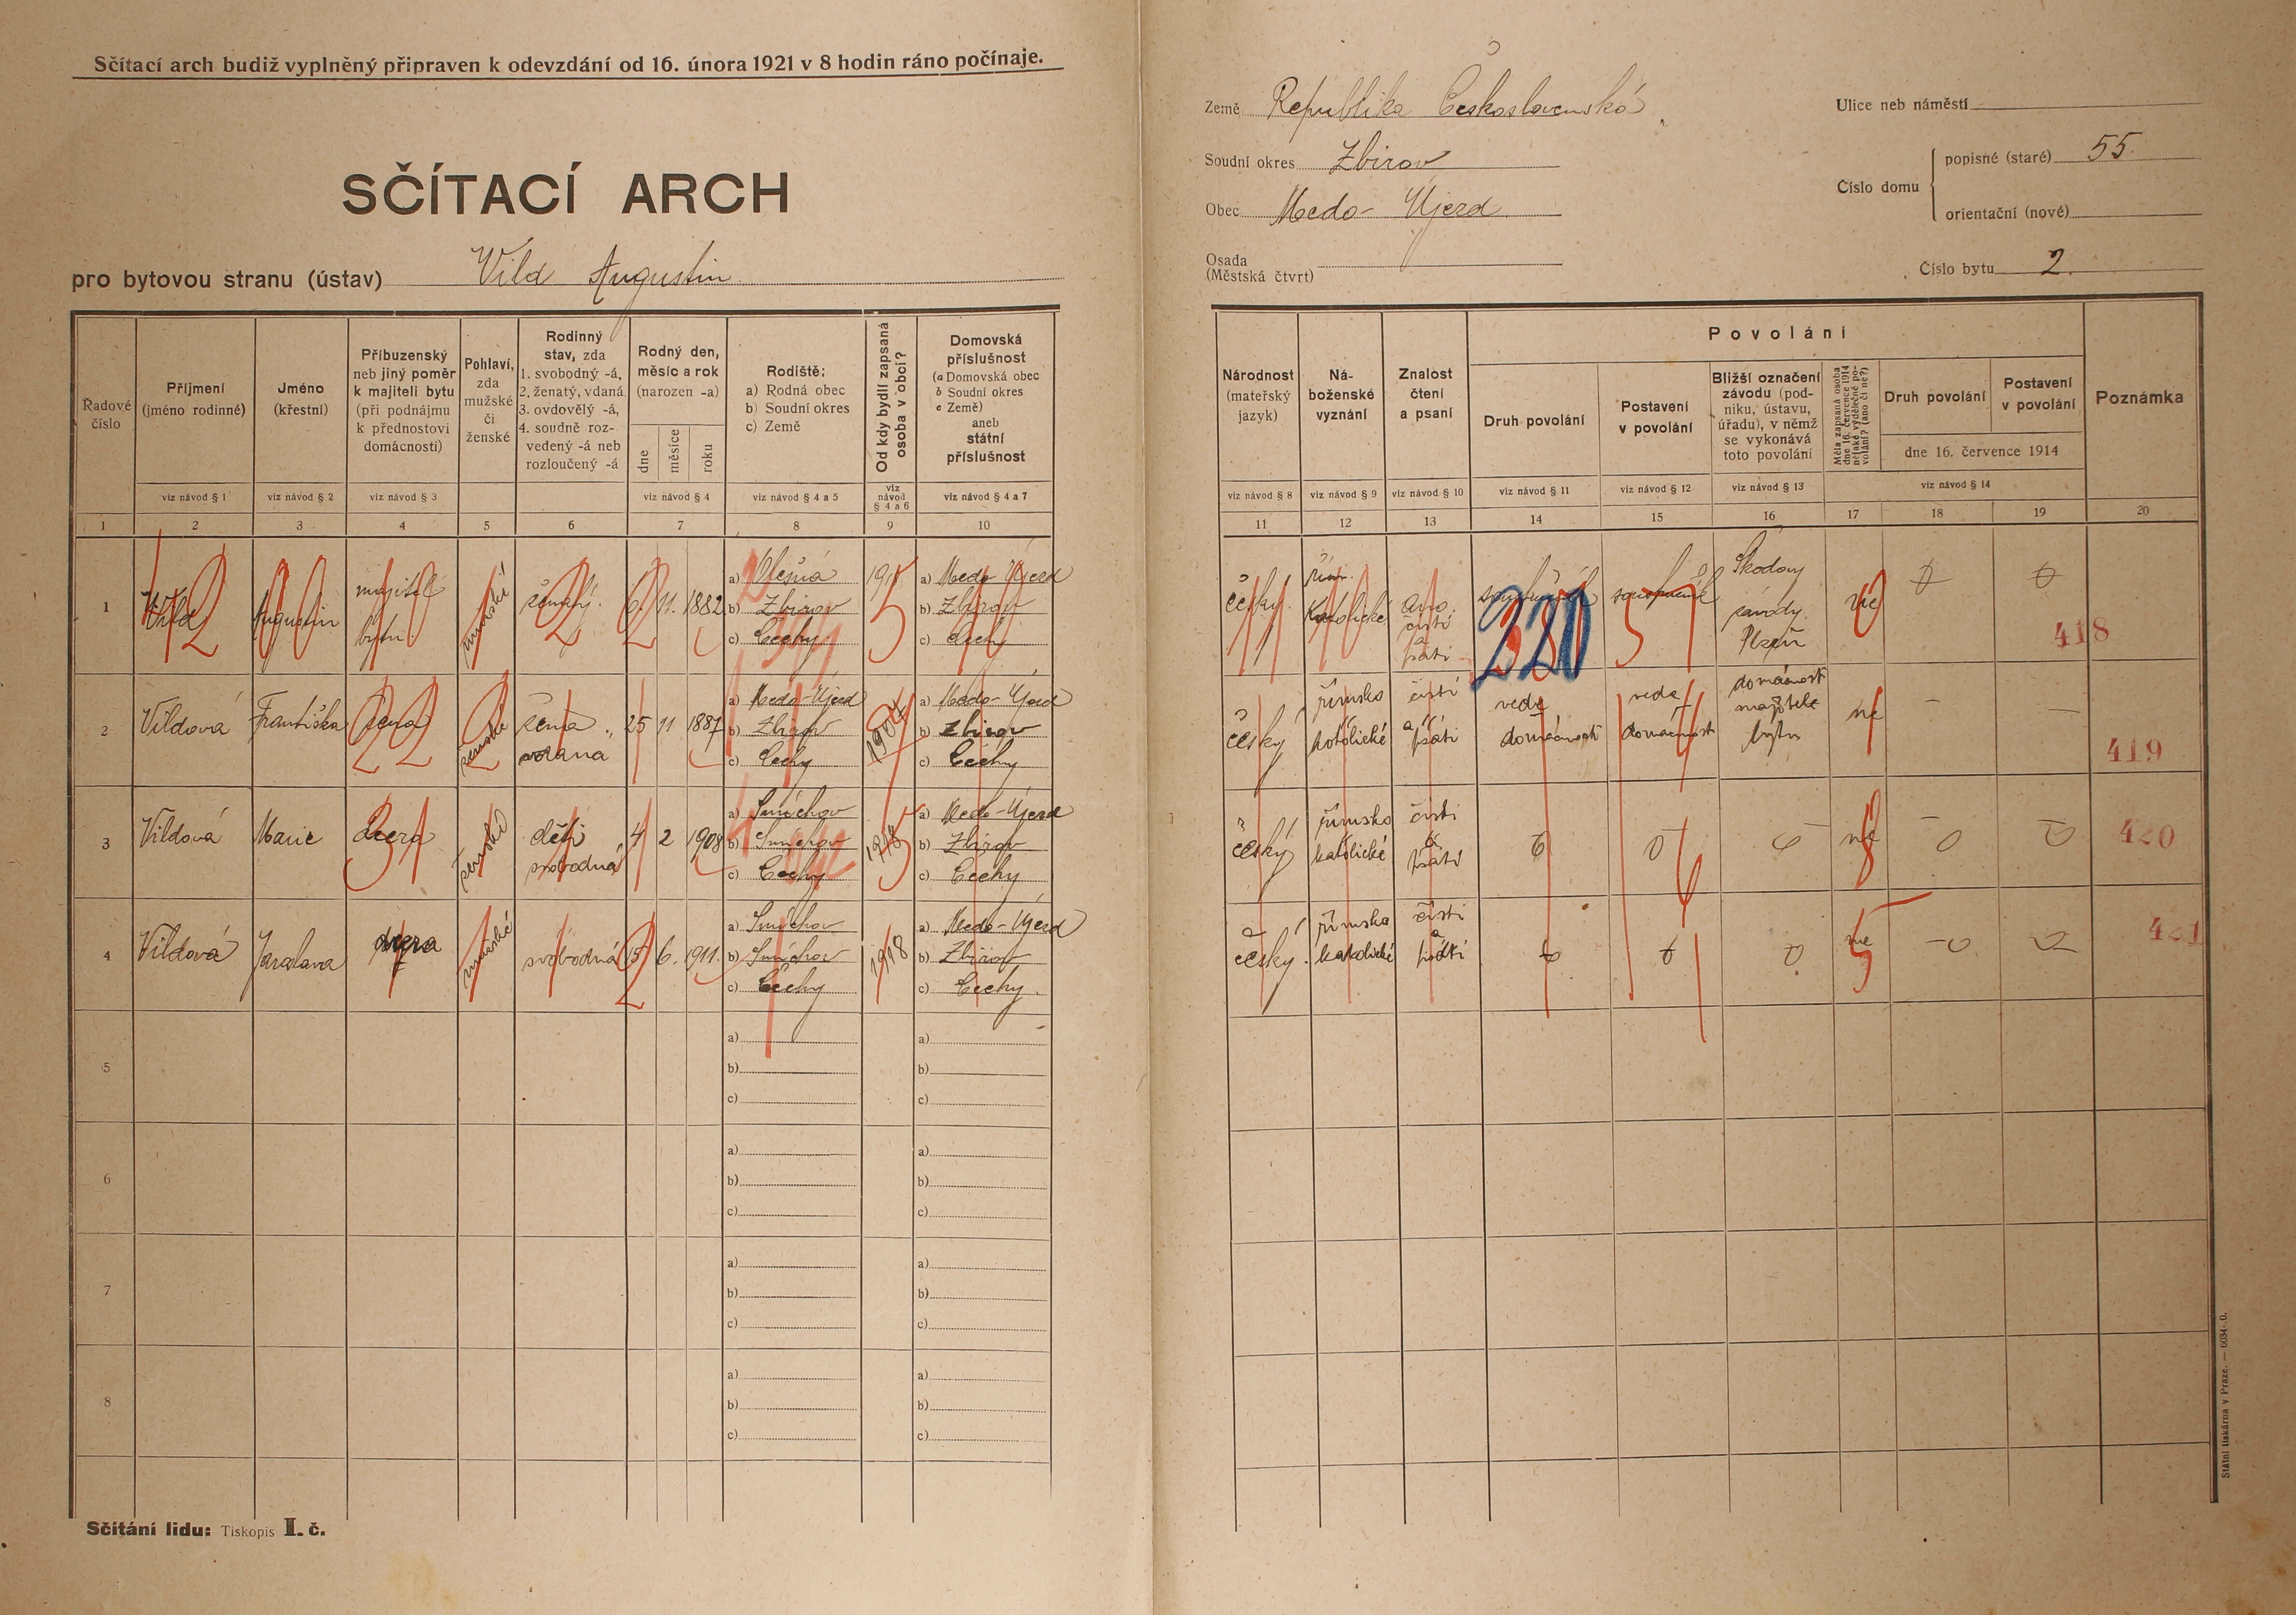 Sčítací arch budiž vyplněný připraven k odevzdání od 16. února 1921 v 8 hodin ráno počínaje.
SČÍTACÍ ARCH
pro bytovou stranu (ústav) Vild Augustin
Země Republika Československá
Soudní okres Zbirov
Obec Medo-Újezd
Osada
(Městská čtvrt)
Ulice neb náměstí
Číslo domu
popisné (staré) 55.
orientační (nové)
Číslo bytu 2.
Řadové číslo
Příjmení (jméno rodinné)
Jméno (křestní)
Příbuzenský neb jiný poměr k majiteli bytu (při podnájmu k přednostovi domácnosti)
Pohlaví, zda mužské či ženské
Rodinný stav, zda 1. svobodný -á, 2. ženatý, vdaná, 3. ovdovělý -á, 4. soudně rozvedený -á neb rozloučený -á
Rodný den, měsíc a rok (narozen -a)
dne měsíce roku
Rodiště: a) Rodná obec b) Soudní okres c) Země
Od kdy bydlí zapsaná osoba v obci?
Domovská příslušnost (a Domovská obec b Soudní okres c Země) aneb státní příslušnost
viz návod § 1 viz návod § 2 viz návod § 3 viz návod § 4 viz návod § 4 a 5 viz návod § 4 a 6 viz návod § 4 a 7
1 2 3 4 5 6 7 8 9 10
Národnost (mateřský jazyk)
Náboženské vyznání
Znalost čtení a psaní
Povolání
Druh povolání
Postavení v povolání
Bližší označení závodu (podniku, ústavu, úřadu), v němž se vykonává toto povolání
Měla zapsaná osoba dne 16. července 1914 nějaké výdělečné povolání? (ano či ne?)
Druh povolání
Postavení v povolání
dne 16. července 1914
Poznámka
viz návod § 8 viz návod § 9 viz návod § 10 viz návod § 11 viz návod § 12 viz návod § 13 viz návod § 14
11 12 13 14 15 16 17 18 19 20
1 Vild Augustin majitel bytu mužské ženatý. 6. 11. 1882
a) Olešná
b) Zbirov
c) Čechy
a) Medo-Újezd
b) Zbirov
c) Čechy
český. řím. katolické ano. čísti a psáti
320
Škodovy závody Plzeň
ne 0 0
418
2 Vildová Františka žena ženské žena vdaná 25 11 1887
a) Medo-Újezd
b) Zbirov
c) Čechy
1904
a) Medo-Újezd
b) Zbirov
c) Čechy
český římsko katolické čísti a psáti vede domácnost vede domácnost domácnost majitele bytu ne - -
419
3 Vildová Marie dcera ženské děti svobodná 4 2 1908
a) Smíchov
b) Smíchov
c) Čechy
1918
a) Medo-Újezd
b) Zbirov
c) Čechy
český římsko katolické čísti a psáti 0 0 0 ne 0 0
420
4 Vildová Jaroslava dcera svobodná 15 6. 1911.
a) Smíchov
b) Smíchov
c) Čechy
1918
a) Medo-Újezd
b) Zbirov
c) Čechy.
český. římska katolické čísti a psáti 0 0 0 ne 0 0
421
5 a) b) c) a) b) c)
6 a) b) c) a) b) c)
7 a) b) c) a) b) c)
8 a) b) c) a) b) c)
Sčítání lidu: Tiskopis I. č.
Státní tiskárna v Praze. — 6034-.0.